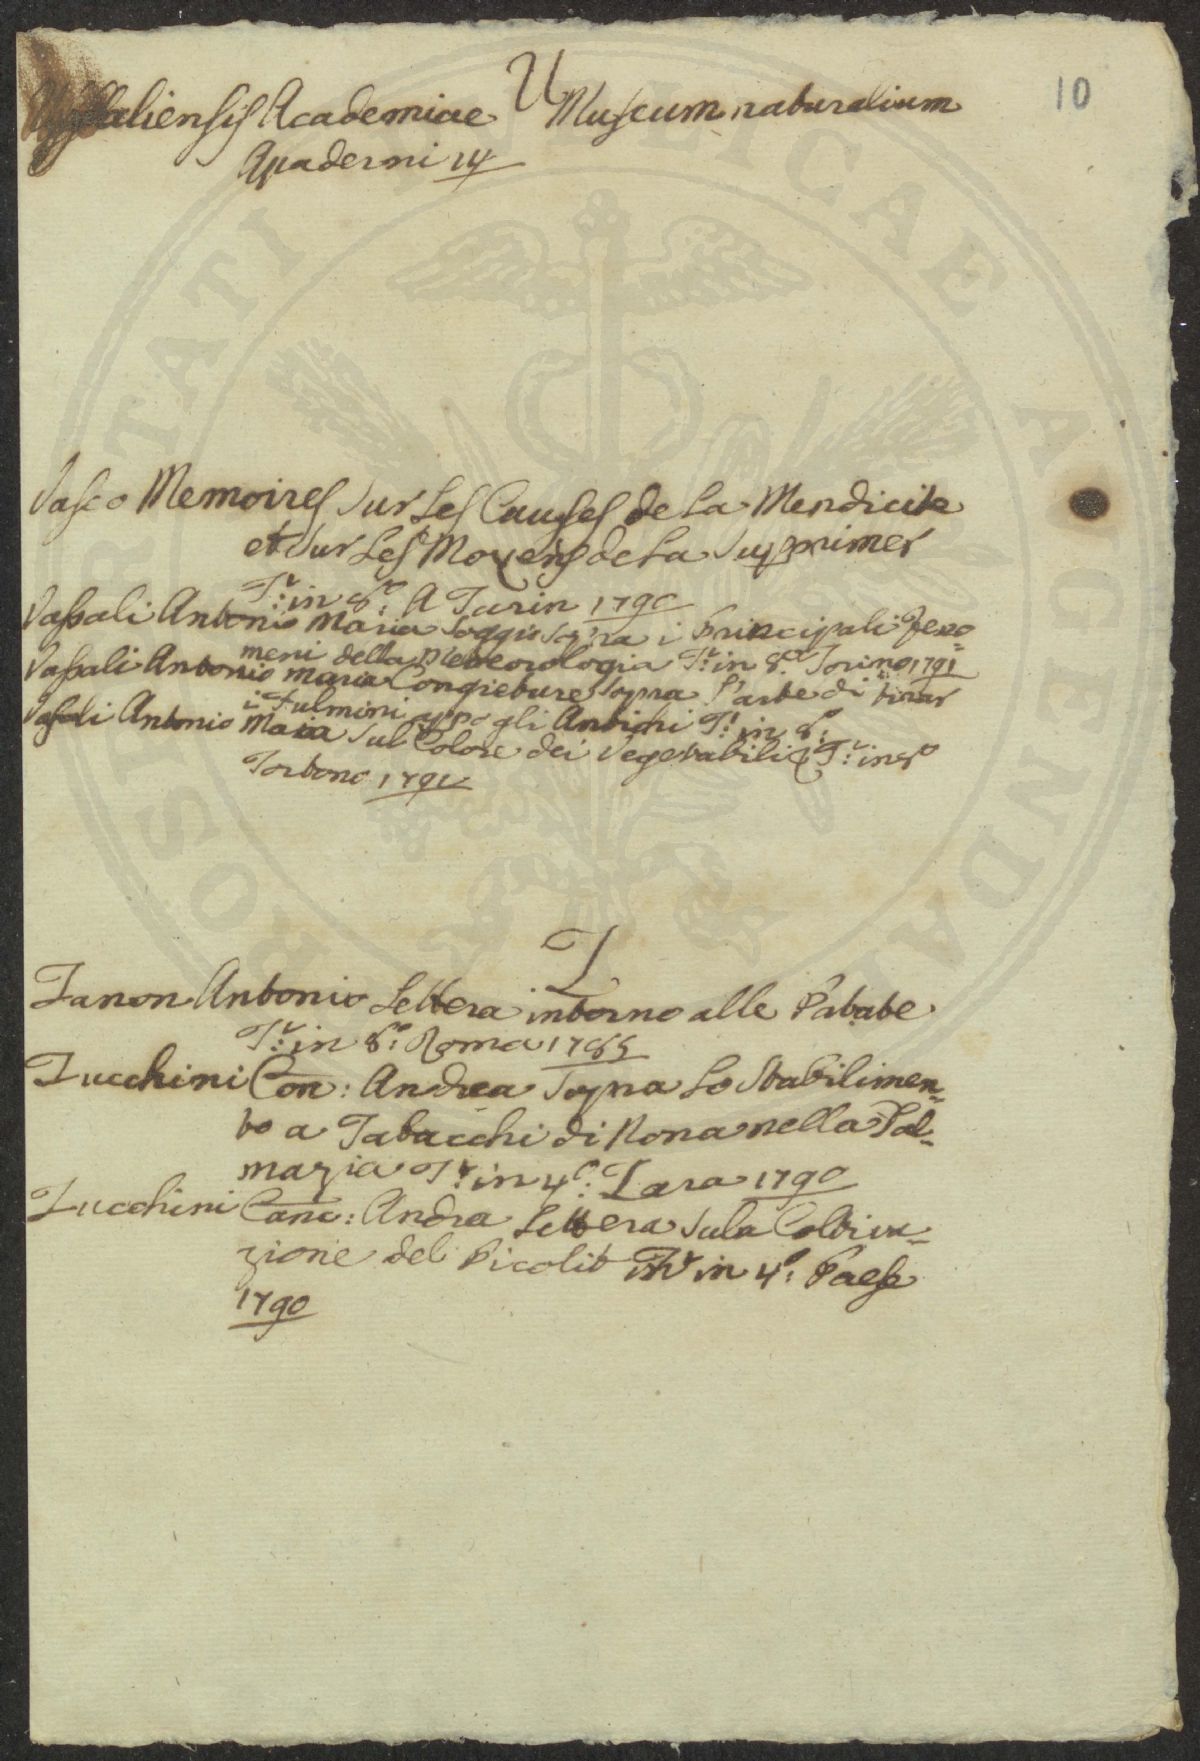 10
U
Upsaliensis Academiae Museum naturalium
Quaderni 14
Vasco Memoires sur Les Causes de La Mendicite
et sur Les Moyens de La supprimer
T: in 8.º A Turin 1790
Vassali Antonio Maria Saggio sopra i Principali Feno=
meni della Meteorologia T: in 8.º Torino 1791
Vassali Antonio Maria Congieture sopra l'arte di tirar
i Fulmini appo gli Antichi T: in 8.º
Vassali Antonio Maria sul Colore dei Vegetabili T: in 8º
Torino
Z
Zanon Antonio Lettera intorno alle Patate
T: in 8.º Roma 1785
Zucchini Con: Andrea sopra Lo Stabilimen=
to a Tabacchi di Nona nella Dal=
mazia T: in 4.º Zara 1790
Zucchini Canc: Andrea Lettera sula Coltiva=
zione del Picolit in 4.º Paese
1790